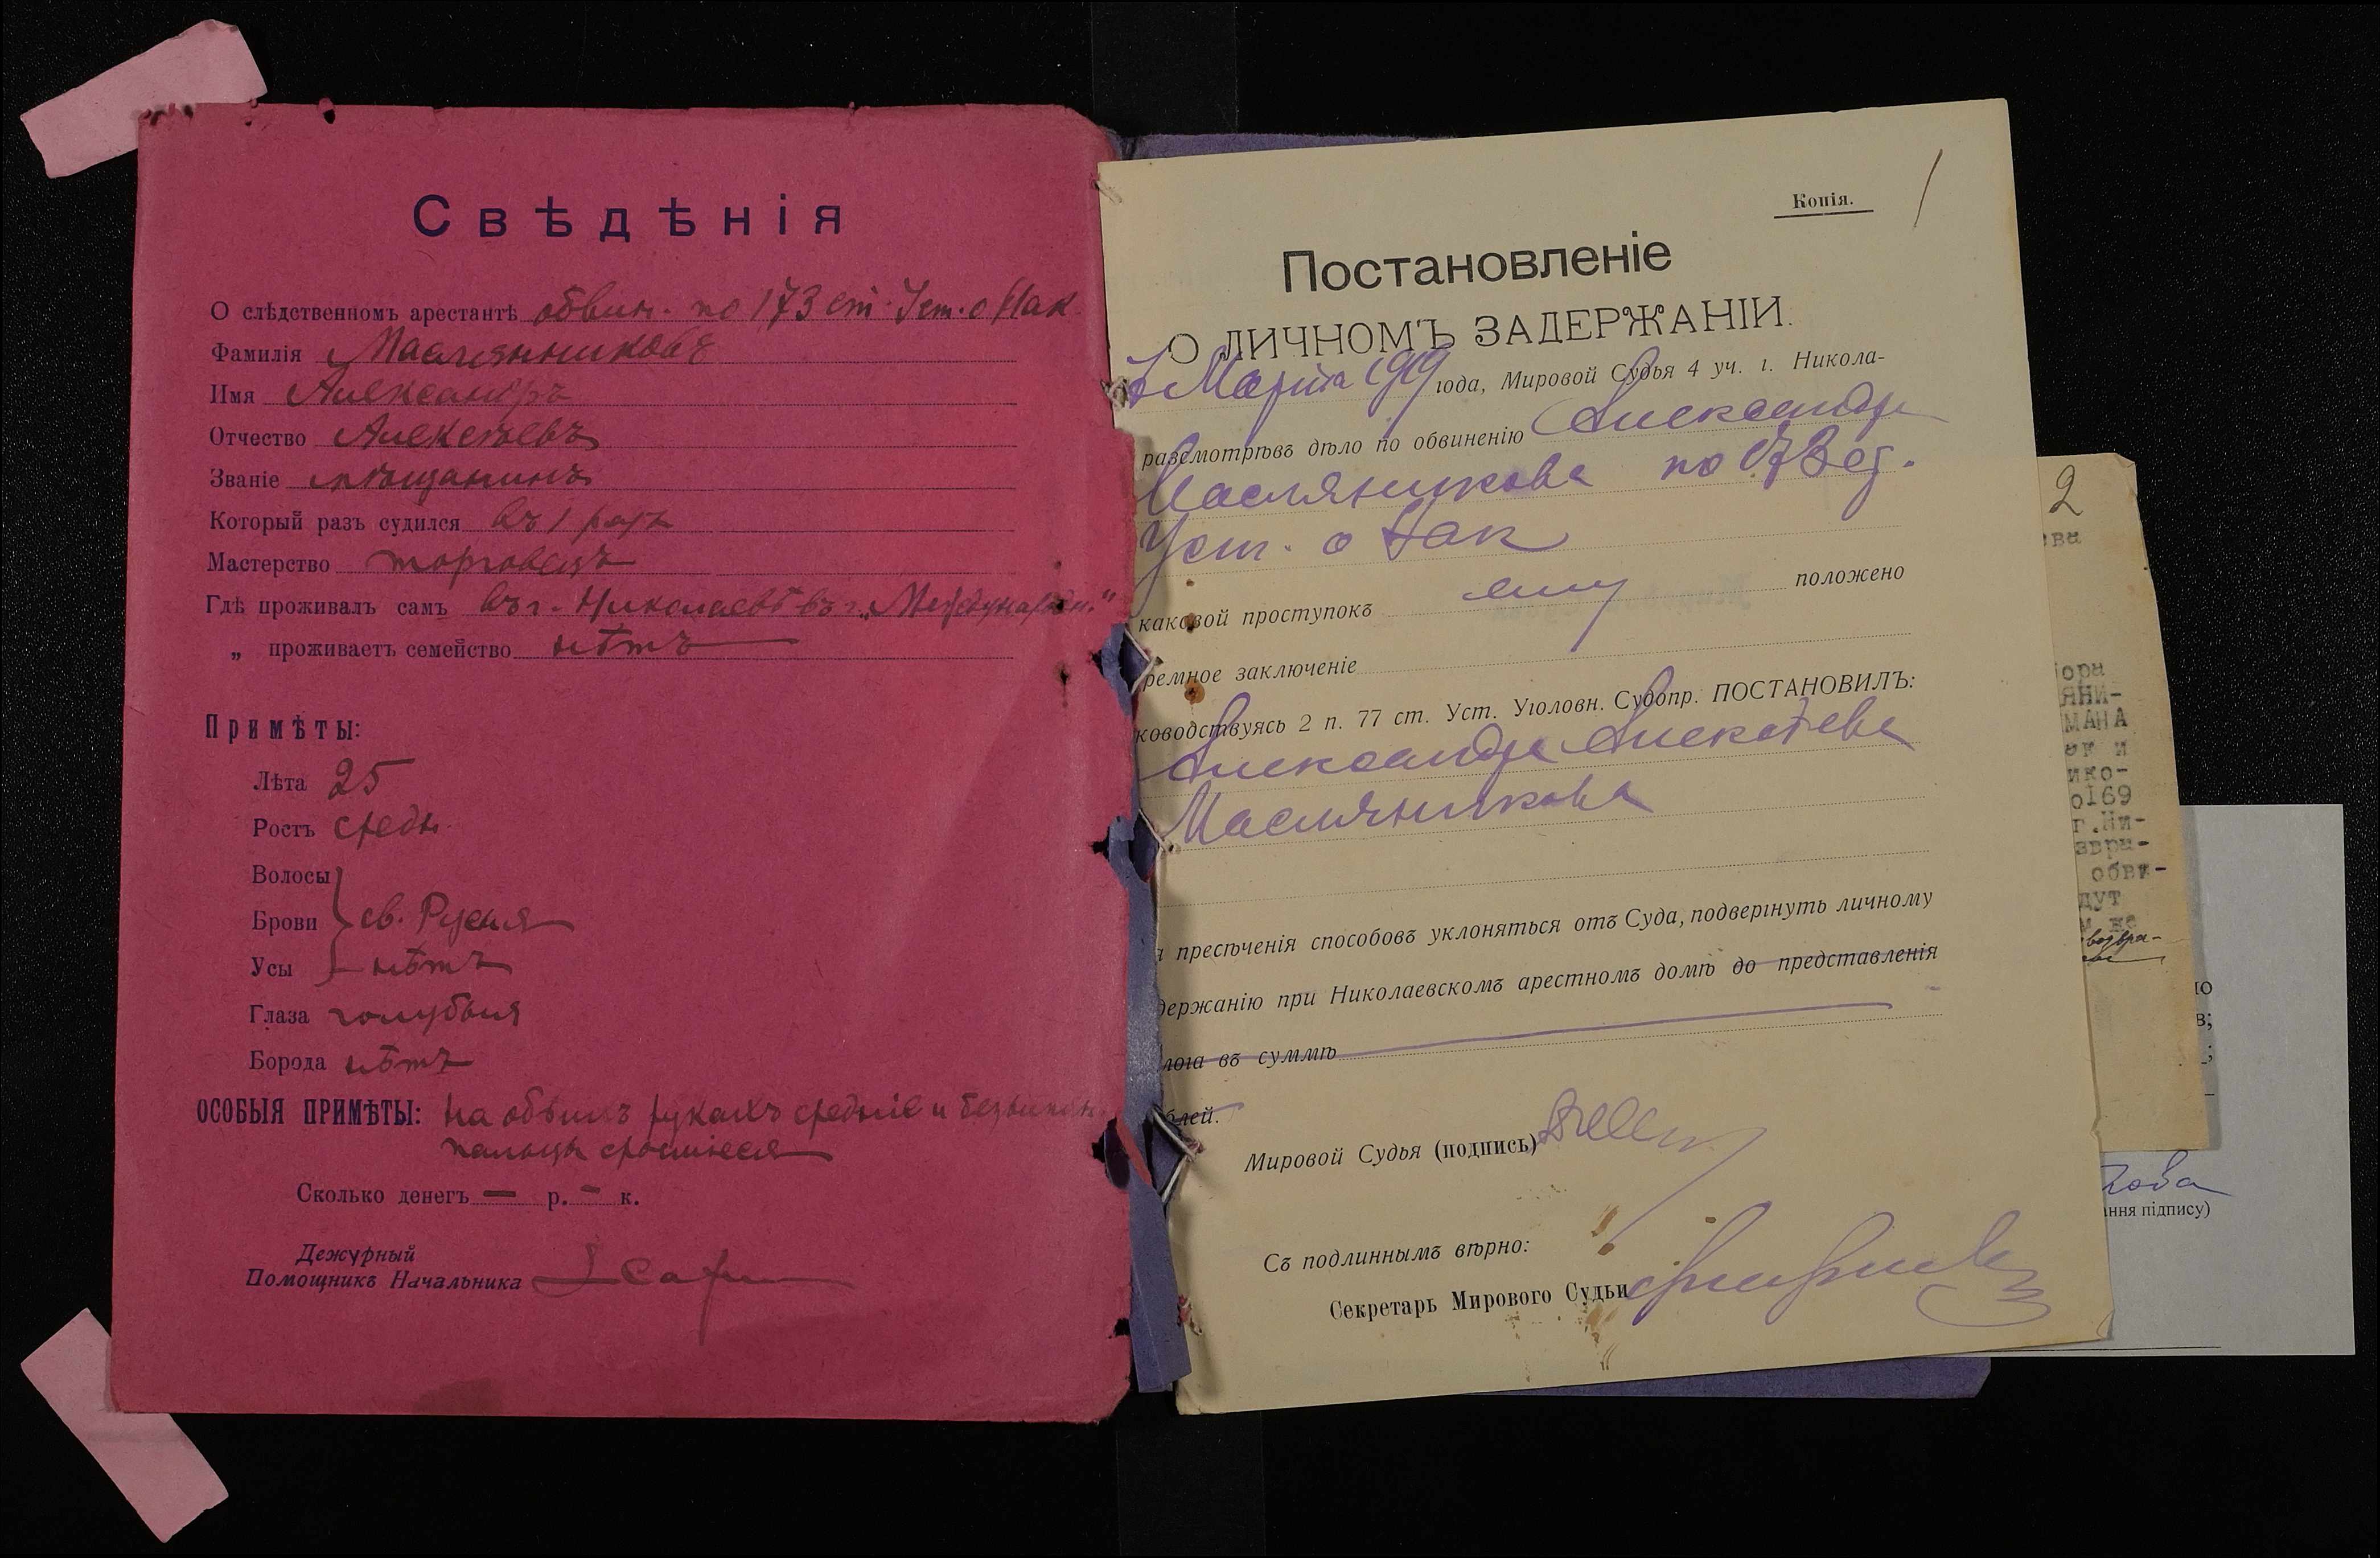 Свѣдѣнія
О слѣдственномъ арестантѣ обвин. по 173 ст. Уст. о Нак.
Фамилія Маслянниковъ
Имя Александръ
Отчество Алексѣевъ
Званіе мѣщанинъ
Который разъ судился въ 1 разъ
Мастерство торговецъ
Гдѣ проживалъ самъ въ г. Николаевѣ въ г. „Международн."
„ проживаетъ семейство нѣтъ
Примѣты:
Лѣта 25
Ростъ средн.
Волосы
Брови св. Русыя
Усы нѣтъ
Глаза голубыя
Борода нѣтъ
ОСОБЫЯ ПРИМѢТЫ: на обѣихъ рукахъ средніе и безымян.
пальцы сросшіеся
Сколько денегъ — р. - к.
Дежурный
Помощникъ Начальника
Копія.
1
Постановленіе
О ЛИЧНОМЪ ЗАДЕРЖАНІИ.
Марта 1919 года, Мировой Судья 4 уч. г. Никола-
разсмотрѣвъ дѣло по обвиненію Александра
Маслянникова по 173 ст.
Уст. о Нак
каковой проступокъ ему положено
ремное заключеніе
ководствуясь 2 п. 77 ст. Уст. Уголовн. Судопр. ПОСТАНОВИЛЪ:
Александра Алексѣева
Маслянникова
я пресѣченія способовъ уклоняться отъ Суда, подвергнуть личному
держанію при Николаевскомъ арестномъ домѣ до представленія
лога въ суммѣ
блей.
Мировой Судья (подпись)
Съ подлиннымъ вѣрно:
Секретарь Мирового Судьи
2
ва
ора
ЯНИ-
МАНА
ак и
ико-
о169
г.Ни-
звра-
обви-
дут
и не
возвра-
ю
в;
;
ння підпису)